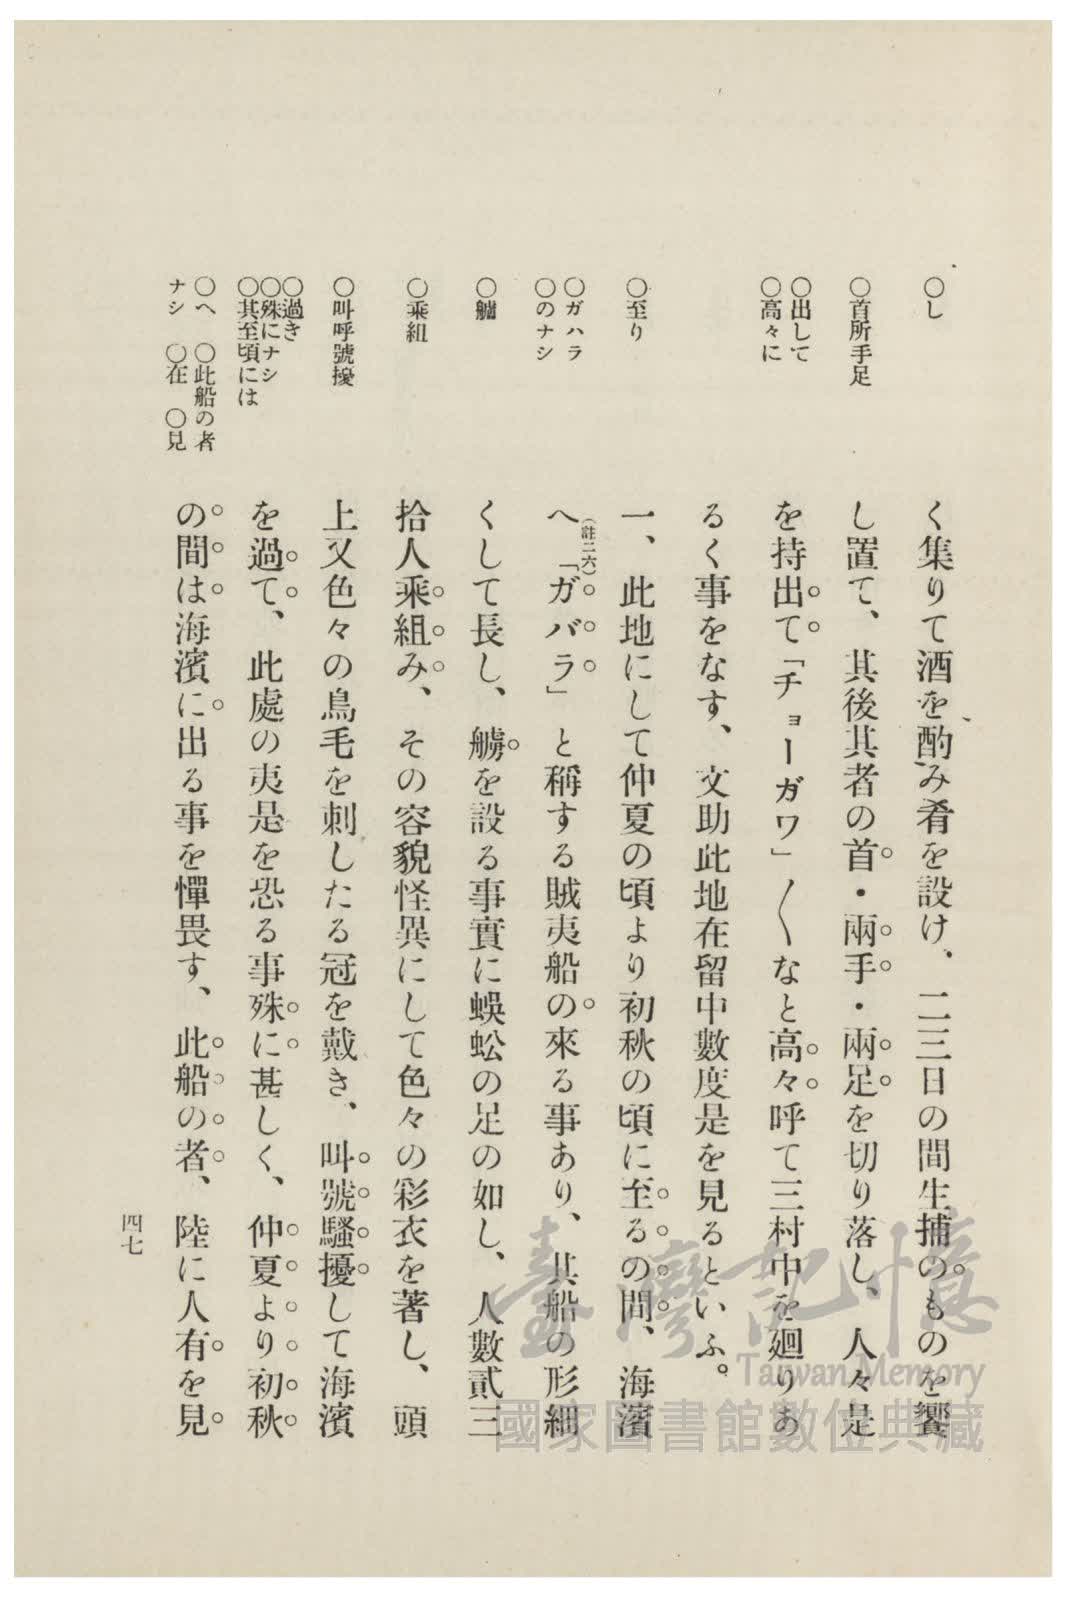 ○し
○首所手足
○出して
○高々に
○至り
○ガハラ
○のナシ
○艫
○乘組
○叫呼號擾
○過き
○殊にナシ
○其至頃には
○へ　○此船の者
ナシ　○在　○見
く集りて酒を酌み肴を設け、二三日の間生捕のものを饗
し置て、其後其者の首・兩手・兩足を切り落し、人々是
を持出て「チョーガワ」〱なと高々呼て三村中を廻りあ
るく事をなす、文助此地在留中數度是を見るといふ。
一、此地にして仲夏の頃より初秋の頃に至るの間、海濱
へ(註二六)「ガバラ」と稱する賊夷船の來る事あり、其船の形細
くして長し、艣を設る事實に蜈蚣の足の如し、人數貳三
拾人乘組み、その容貌怪異にして色々の彩衣を著し、頭
上又色々の鳥毛を刺したる冠を戴き、叫號騷擾して海濱
を過て、此處の夷是を恐る事殊に甚しく、仲夏より初秋
の間は海濱に出る事を憚畏す、此船の者、陸に人有を見
四七
臺灣記憶
Taiwan Memory
國家圖書館數位典藏